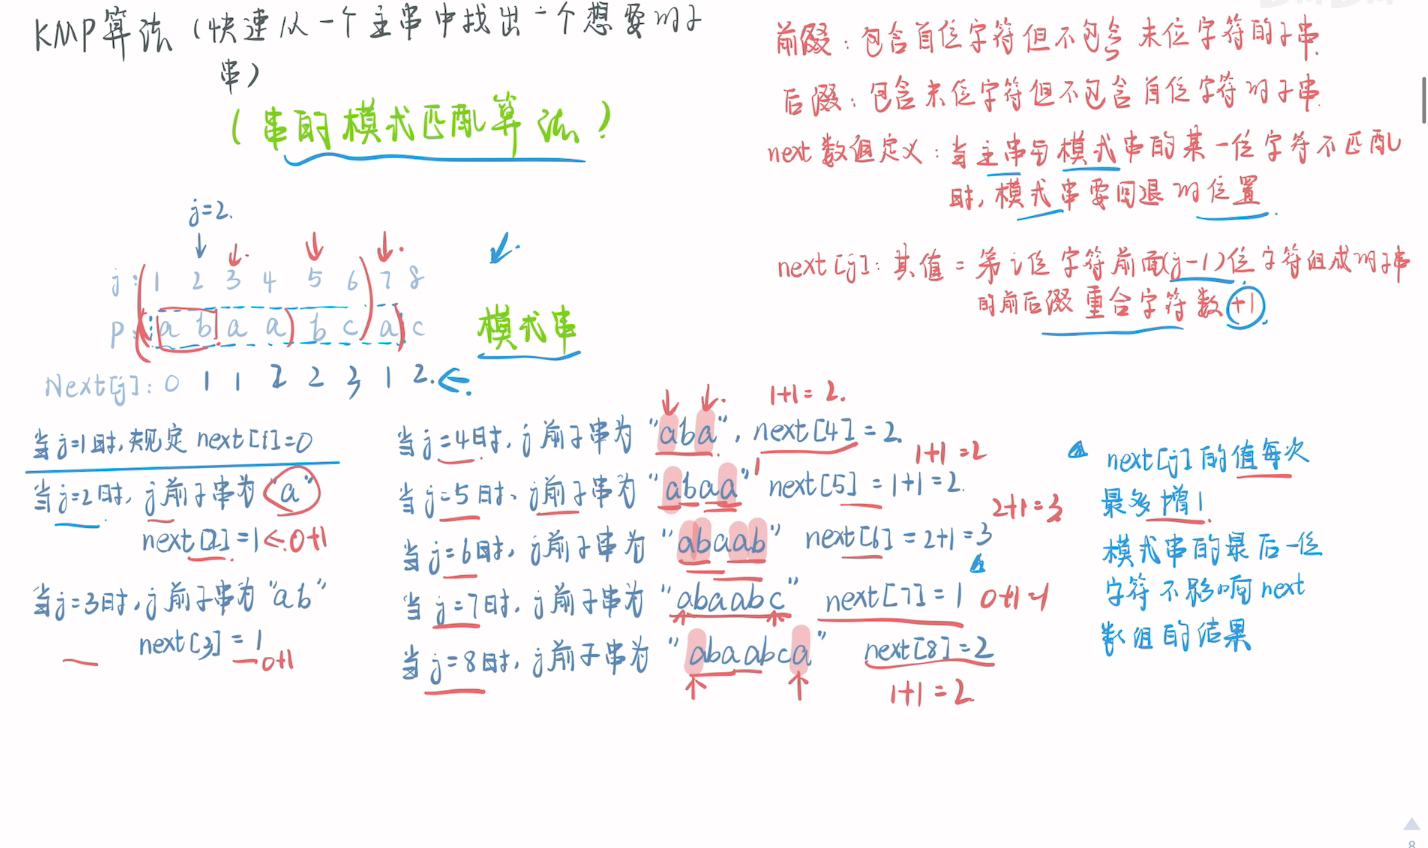 KMP算法（快速从一个主串中找出一个想要的子
串）
（串的模式匹配算法）
前缀：包含首位字符但不包含末位字符的子串.
后缀：包含末位字符但不包含首位字符的子串.
next数组定义：当主串与模式串的某一位字符不匹配
时，模式串要回退的位置
next[j]：其值=第j位字符前面(j-1)位字符组成的子串
的前后缀重合字符数+1
j=2.
j：1 2 3 4 5 6 7 8
P：a b a a b c a c
模式串
Next[j]：0 1 1 2 2 3 1 2.
当j=1时，规定next[1]=0
当j=2时，j前子串为"a"
next[2]=1 ←0+1
当j=3时，j前子串为"ab"
next[3]=1
0+1
1+1=2.
当j=4时，j前子串为"aba"，next[4]=2
1+1=2
当j=5时、j前子串为"abaa" next[5]=1+1=2.
2+1=3
当j=6时，j前子串为"abaab" next[6]=2+1=3
当j=7时，j前子串为"abaabc" next[7]=1 0+1=1
当j=8时，j前子串为"abaabca" next[8]=2
1+1=2
next[j]的值每次
最多增1
模式串的最后一位
字符不影响next
数组的结果
8